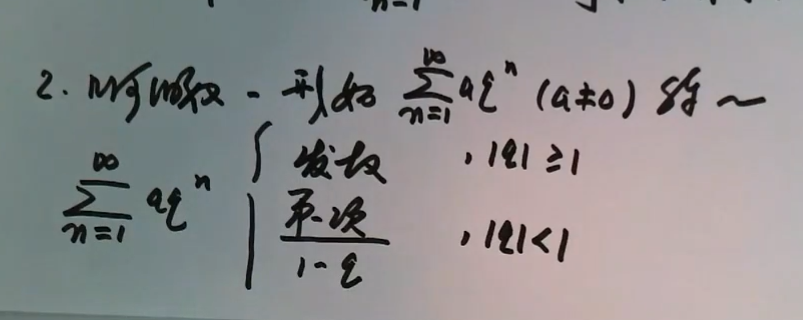 2. 几何级数 - 形如 $\sum_{n=1}^{\infty} aq^n$ (a≠0) 的~
$\sum_{n=1}^{\infty} aq^n \begin{cases} 发散, & |q| \geq 1 \\ \frac{第一项}{1-q}, & |q| < 1 \end{cases}$